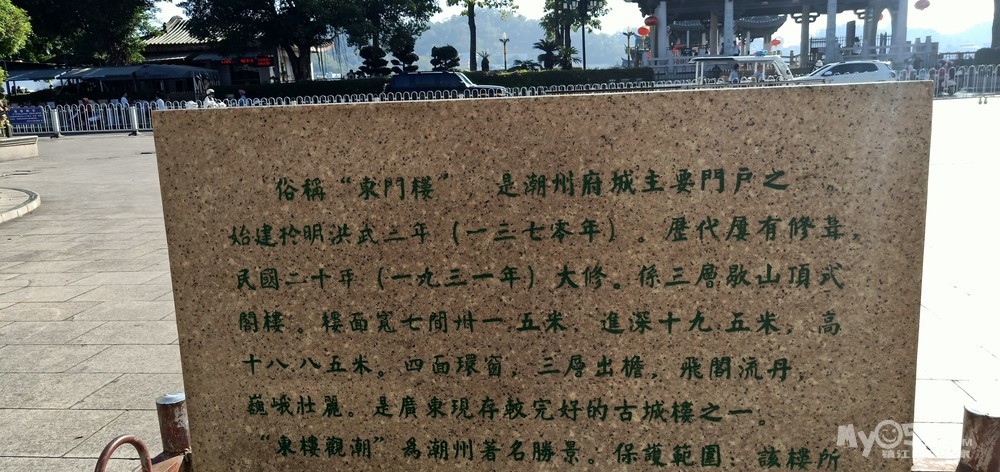 俗稱“東門樓” 是潮州府城主要門戶之一。
始建於明洪武三年（一三七零年）。歷代屢有修葺，
民國二十年（一九三一年）大修。係三層歇山頂式
閣樓。樓面寬七間卅一.五米，進深十九.五米，高
十八.八五米。四面環窗，三層出檐，飛閣流丹，
巍峨壯麗。是廣東現存較完好的古城樓之一。
“東樓觀潮”為潮州著名勝景。保護範圍：該樓所